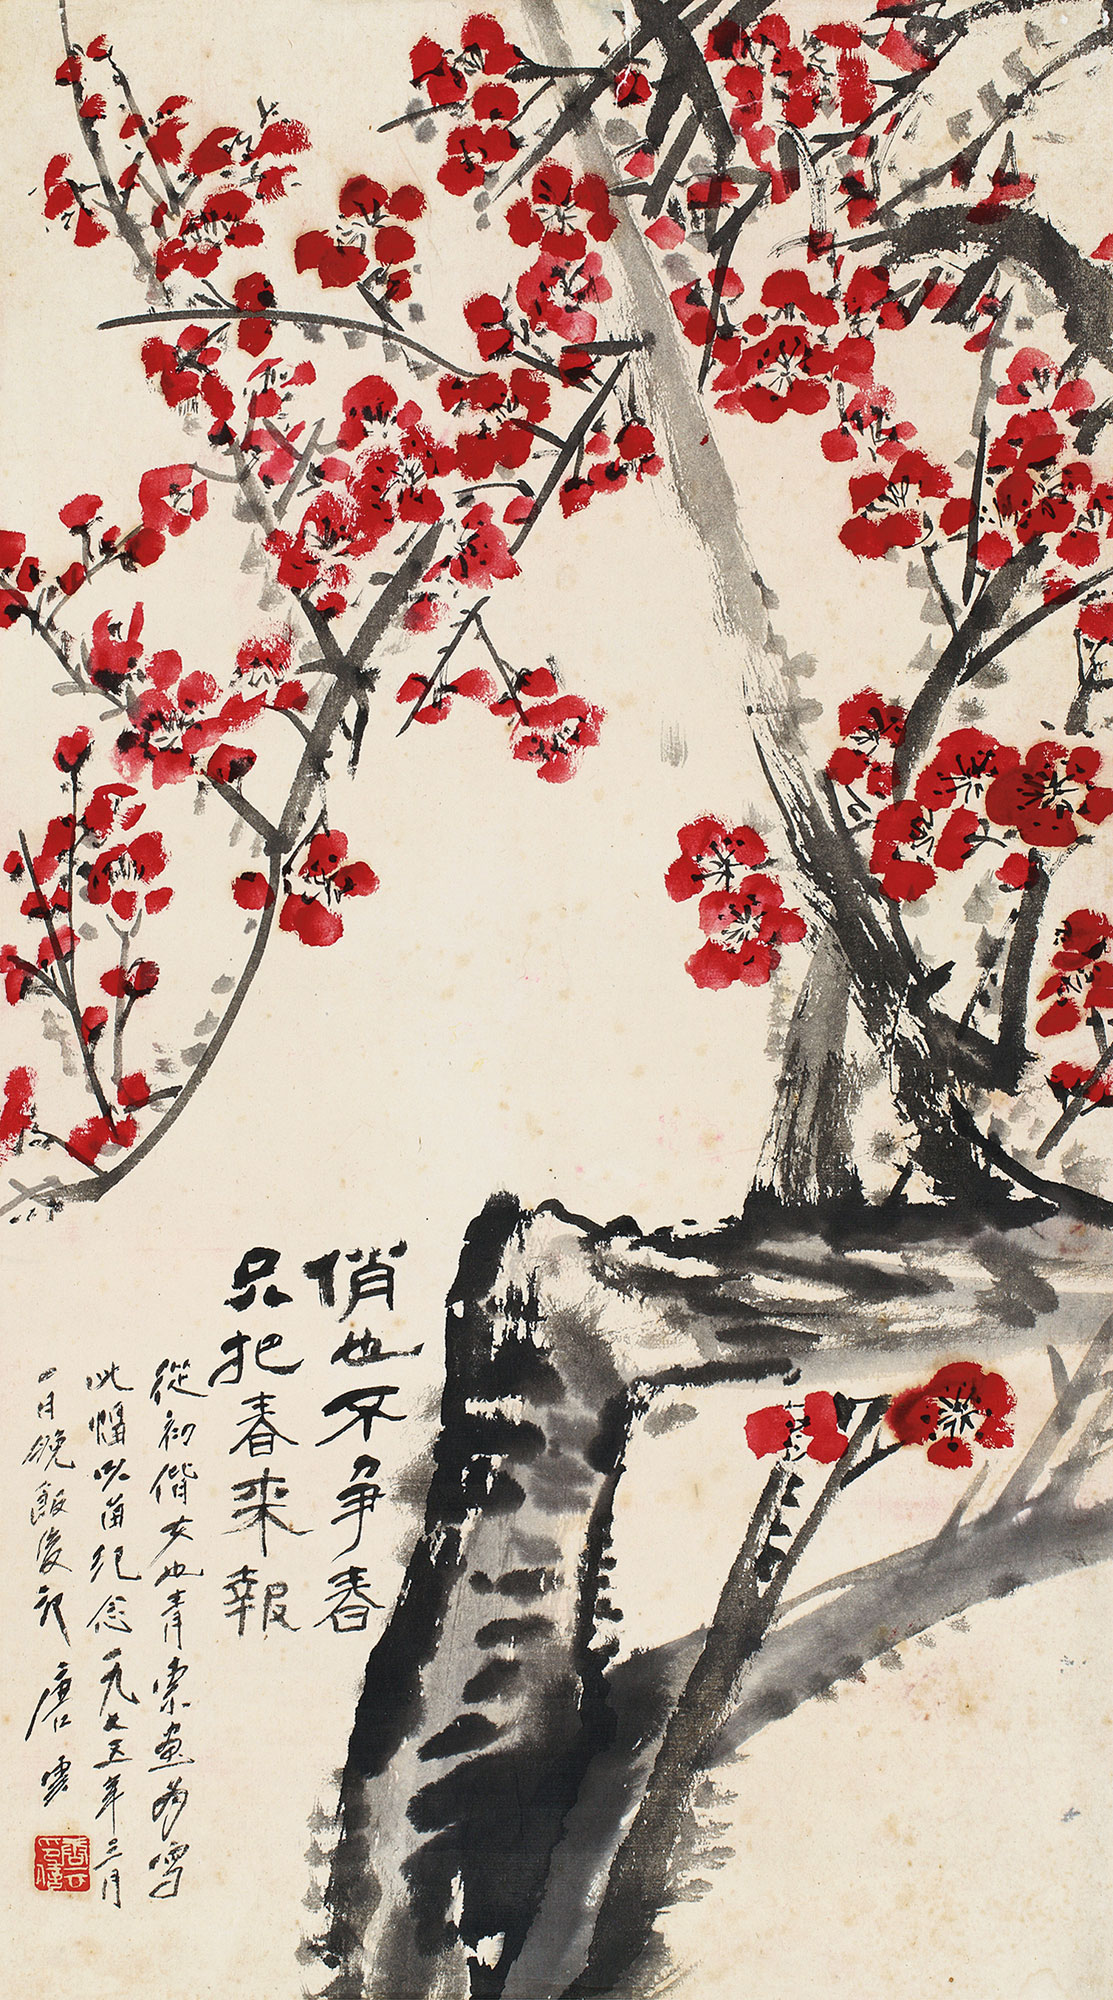 俏也不争春
只把春来報
從初偕女也青索畫為写
此幅以留紀念一九七五年三月
一日晚飯後記 唐雲